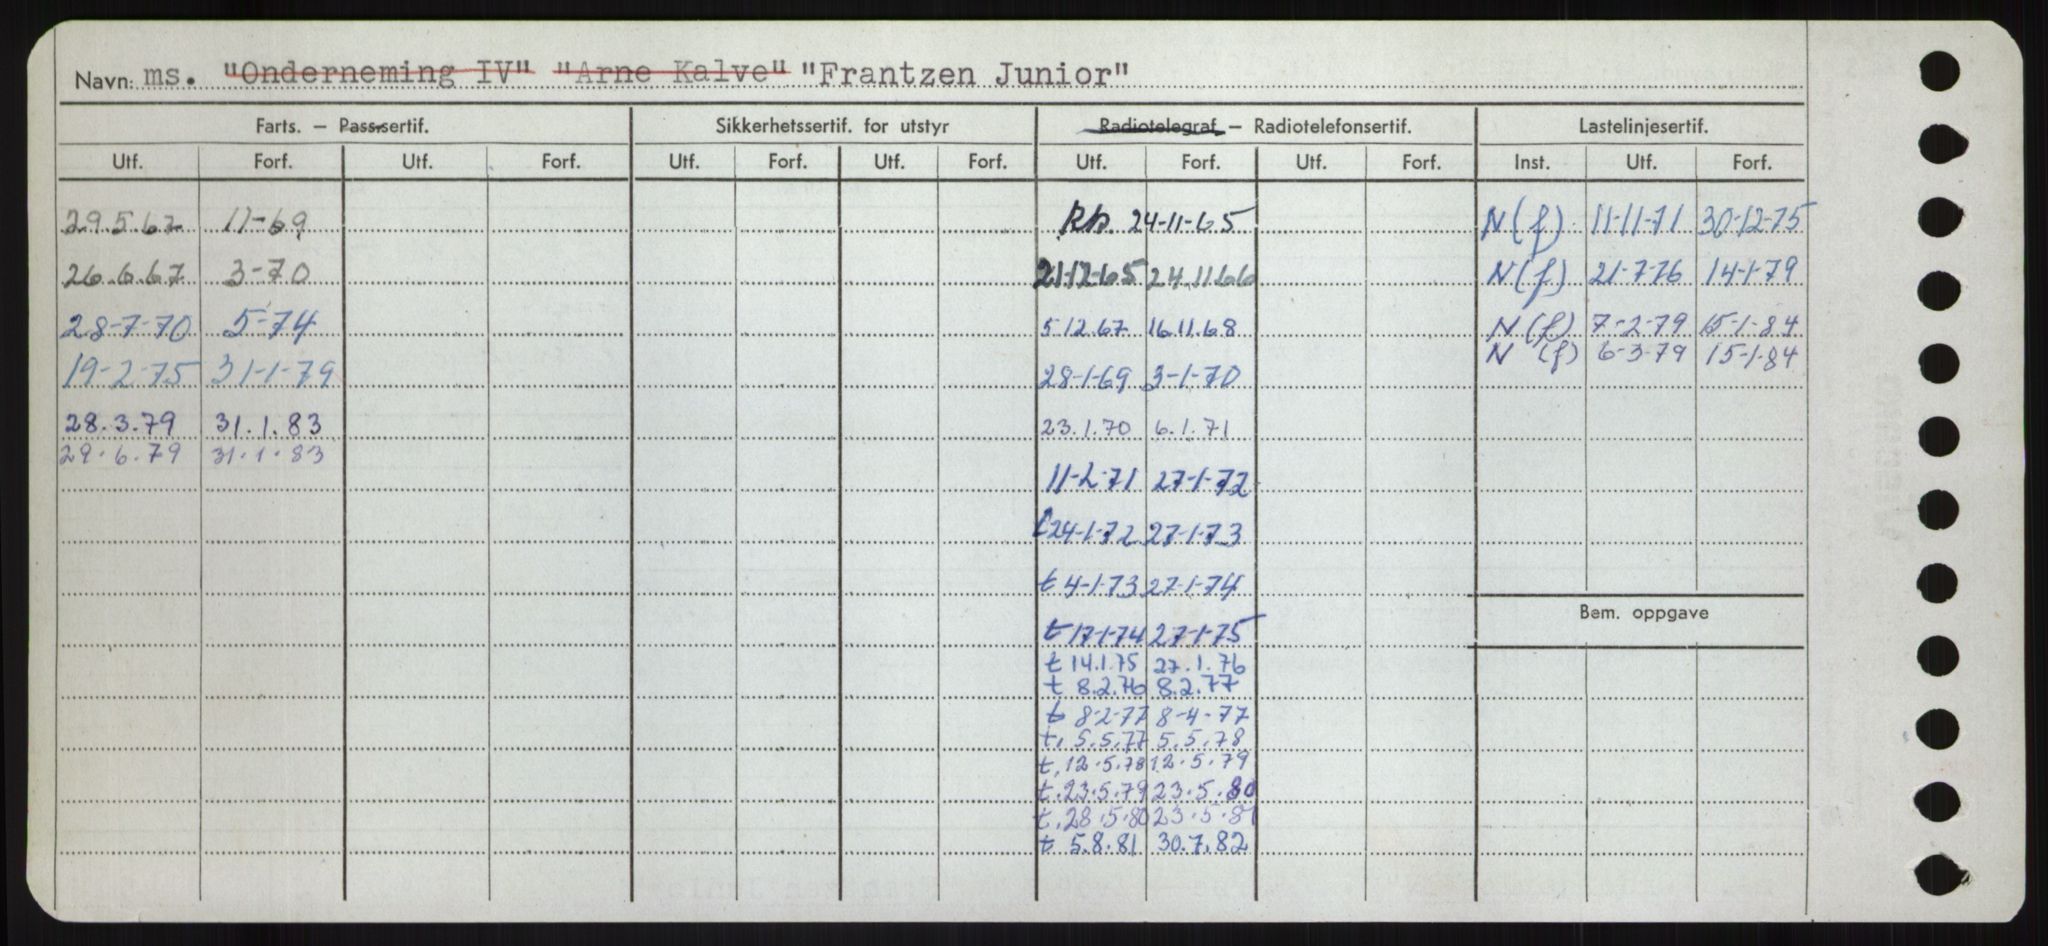 Navn: ms. "Onderneming IV" "Arne Kalve" "Frantzen Junior"
Farts. – Passsertif. Sikkerhetssertif. for utstyr Radiotelegraf – Radiotelefonsertif. Lastelinjesertif.
Utf. Forf. Utf. Forf. Utf. Forf. Utf. Forf. Utf. Forf. Utf. Forf. Inst. Utf. Forf.
29.5.67 11-69 24-11-65 N(f). 11-11-71 30-12-75
26.6.67 3-70 21-12-65 24.11.66 N(f) 21-7-76 14-1-79
28-7-70 5-74 5.12.67 16.11.68 N(f) 7-2-79 15-1-84
N (f) 6-3-79 15-1-84
19-2-75 31-1-79 28-1-69 3-1-70
28.3.79 31.1.83 23.1.70 6.1.71
29.6.79 31.1.83
11-2-71 27-1-72
t 24-1-72 27-1-73
t 4-1-73 27-1-74
Bem. oppgave
t 17-1-74 27-1-75
t 14.1.75 27.1.76
t 8.2.76 8.2.77
t 8-2-77 8-4-77
t. 5.5.77 5.5.78
t. 12.5.78 12.5.79
t. 23.5.79 23.5.80
t. 28.5.80 23.5.81
t 5.8.81 30.7.82